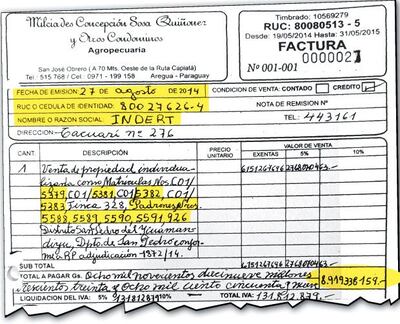 Milciades Concepción Sosa Quiñonez
y Otros Condominos
Agropecuaria
San José Obrero (A 70 Mts. Oeste de la Ruta Capiatá)
Tel.: 515 768 / Cel.: 0971 - 199 158 Areguá - Paraguay
Timbrado: 10569279
RUC: 80080513 - 5
Desde: 19/05/2014 Hasta: 31/05/2015
FACTURA
Nº 001-001 0000021
FECHA DE EMISION: 27 de agosto de 2014 CONDICION DE VENTA: CONTADO CREDITO
RUC O CÉDULA DE IDENTIDAD: 80027626-4 NOTA DE REMISION Nº
NOMBRE O RAZON SOCIAL: INDERT TEL.: 443161
DIRECCION: Tacuarí nº 276
CANT. DESCRIPCIÓN PRECIO UNITARIO VALOR DE VENTA
EXENTAS 5% 10%
1 Venta de propiedad individua-
lizada como Matrículas Nos. C01/
5379, C01/5381, C01/5382, C01/
5383, Finca 328, Padrones Nros.
5588, 5589, 5590, 5591, 926
Distrito San Pedro del Ycuaman-
diyu, Dpto. de San Pedro confor-
me RP adjudicación 1872/14.
SUB TOTAL
TOTAL A PAGAR Gs. Ocho mil novecientos diecinueve millones 8.919.338.159.-
trescientos treinta y ocho mil ciento cincuenta y nueve
LIQUIDACION DEL IVA: 5% 131.812.879 10% TOTAL IVA: 131.812.879.-